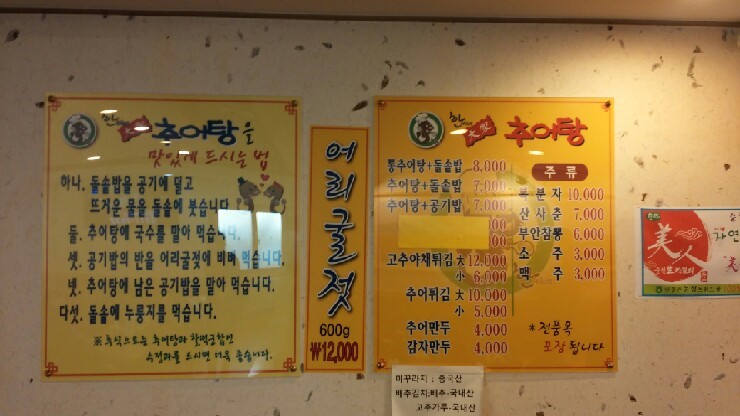 추어탕을
맛있게 드시는 법
하나. 돌솥밥을 공기에 덜고
뜨거운 물을 돌솥에 붓습니다.
둘. 추어탕에 국수를 말아 먹습니다.
셋. 공기밥의 반을 어리굴젓에 비벼 먹습니다.
넷. 추어탕에 남은 공기밥을 말아 먹습니다.
다섯. 돌솥에 누룽지를 먹습니다.
※ 후식으로는 추어탕과 찰떡궁합인
수정과를 드시면 더욱 좋습니다.
어리굴젓
600g
₩12,000
추어탕
통추어탕+돌솥밥 8,000
추어탕+돌솥밥 7,000
추어탕+공기밥 7,000
고추야채튀김 大 12,000
小 6,000
추어튀김 大 10,000
小 5,000
추어만두 4,000
감자만두 4,000
주류
복분자 10,000
산사춘 7,000
부안참뽕 6,000
소주 3,000
맥주 3,000
*전품목
포장됩니다
미꾸라지 : 중국산
배추김치:배추-국내산
고추가루-국내산
美人